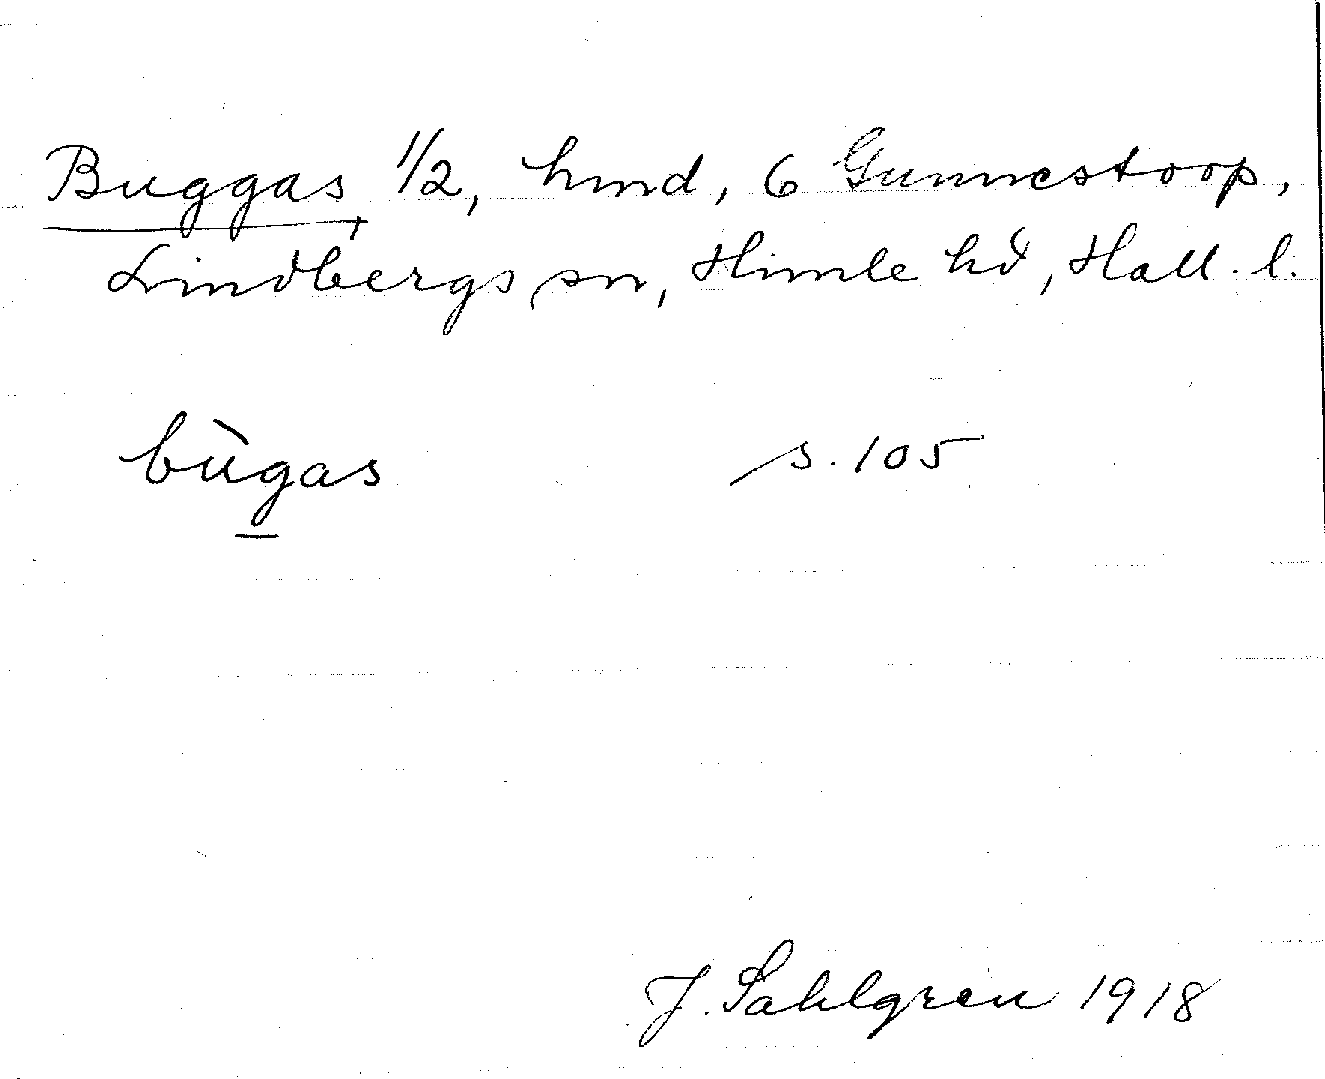 Buggas, 1/2, hmd, 6 Gunnestorp,
Lindbergs sn, Himle hd, Hall. l.
bùgas s. 105
J. Sahlgren 1918